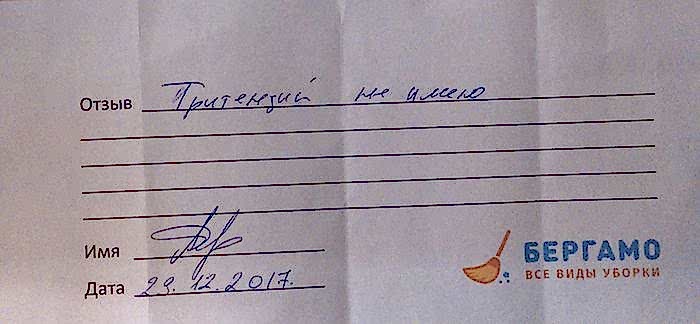 Отзыв Притенций не имею
Имя
Дата 29.12.2017.
БЕРГАМО
ВСЕ ВИДЫ УБОРКИ